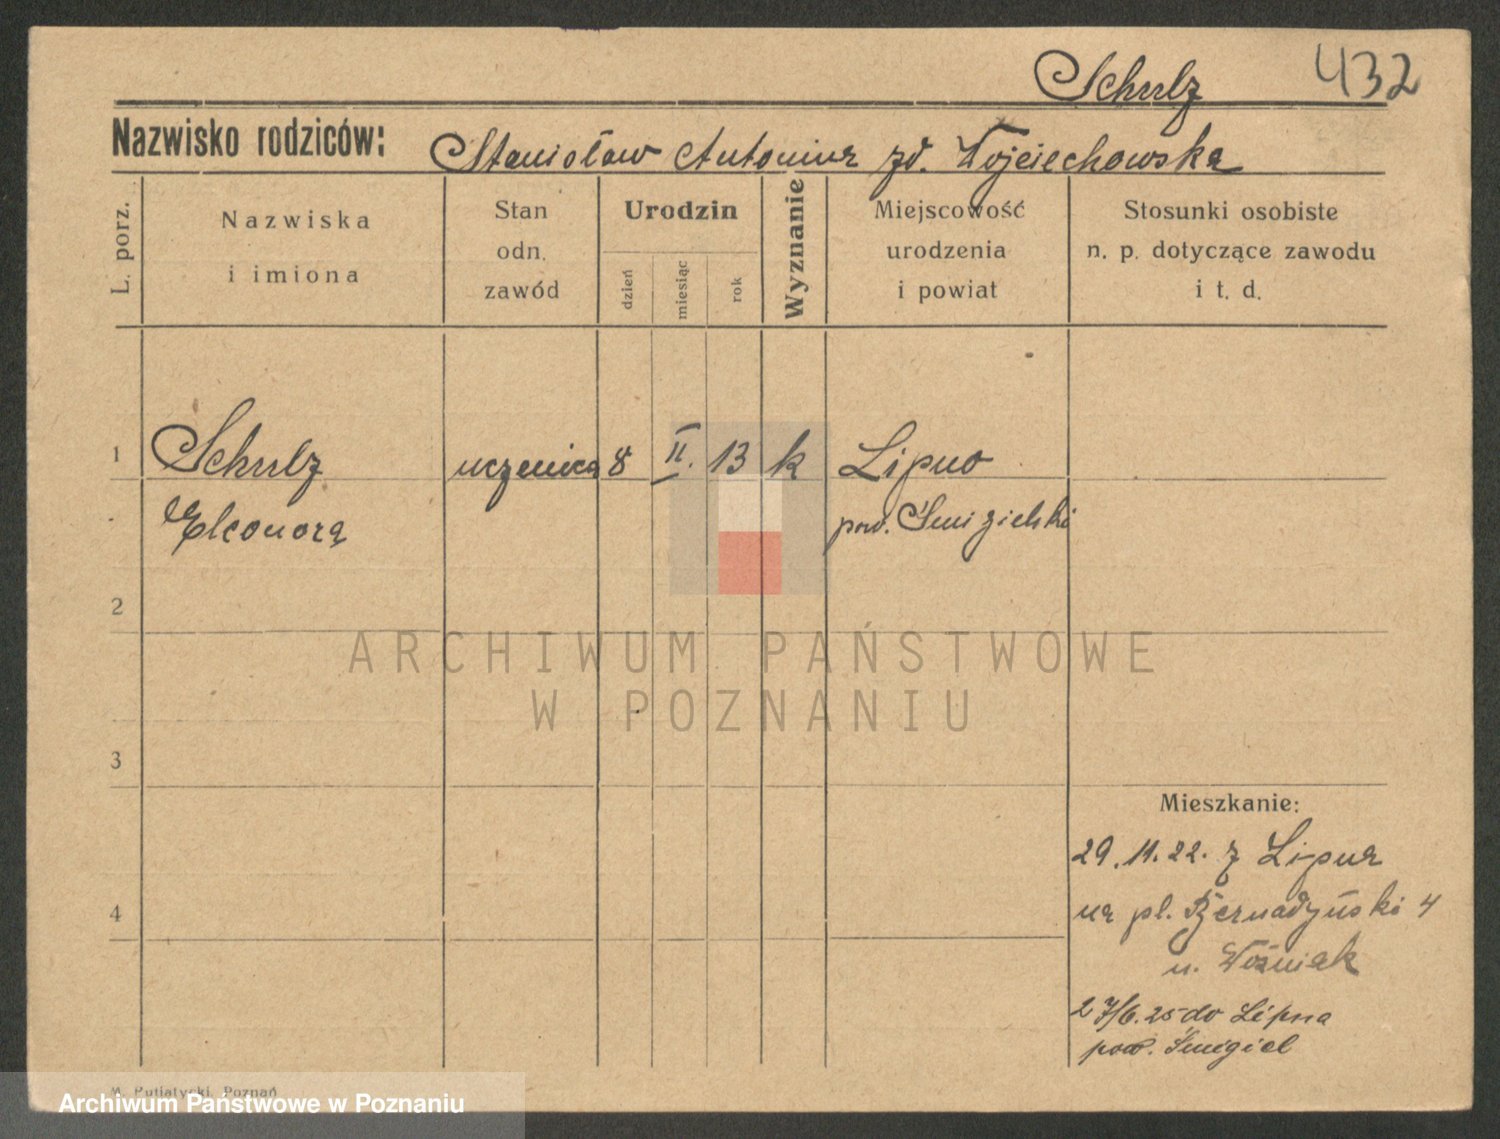 Schulz 432
Nazwisko rodziców: Stanisław Antonina zd. Wojciechowska
L. porz.
Nazwiska
i imiona
Stan
odn.
zawód
Urodzin
dzień
miesiąc
rok
Wyznanie
Miejscowość
urodzenia
i powiat
Stosunki osobiste
n. p. dotyczące zawodu
i t. d.
1 Schulz uczenica 8 II. 13 k Lipno
Eleonora pow. Śmigielski
2
ARCHIWUM PAŃSTWOWE
W POZNANIU
3
Mieszkanie:
29.11.22. z Lipna
4 na pl. Bernadyński 4
u. Woźniak
27/6.25 do Lipna
pow. Śmigiel
M. Putiatycki, Poznań
Archiwum Państwowe w Poznaniu